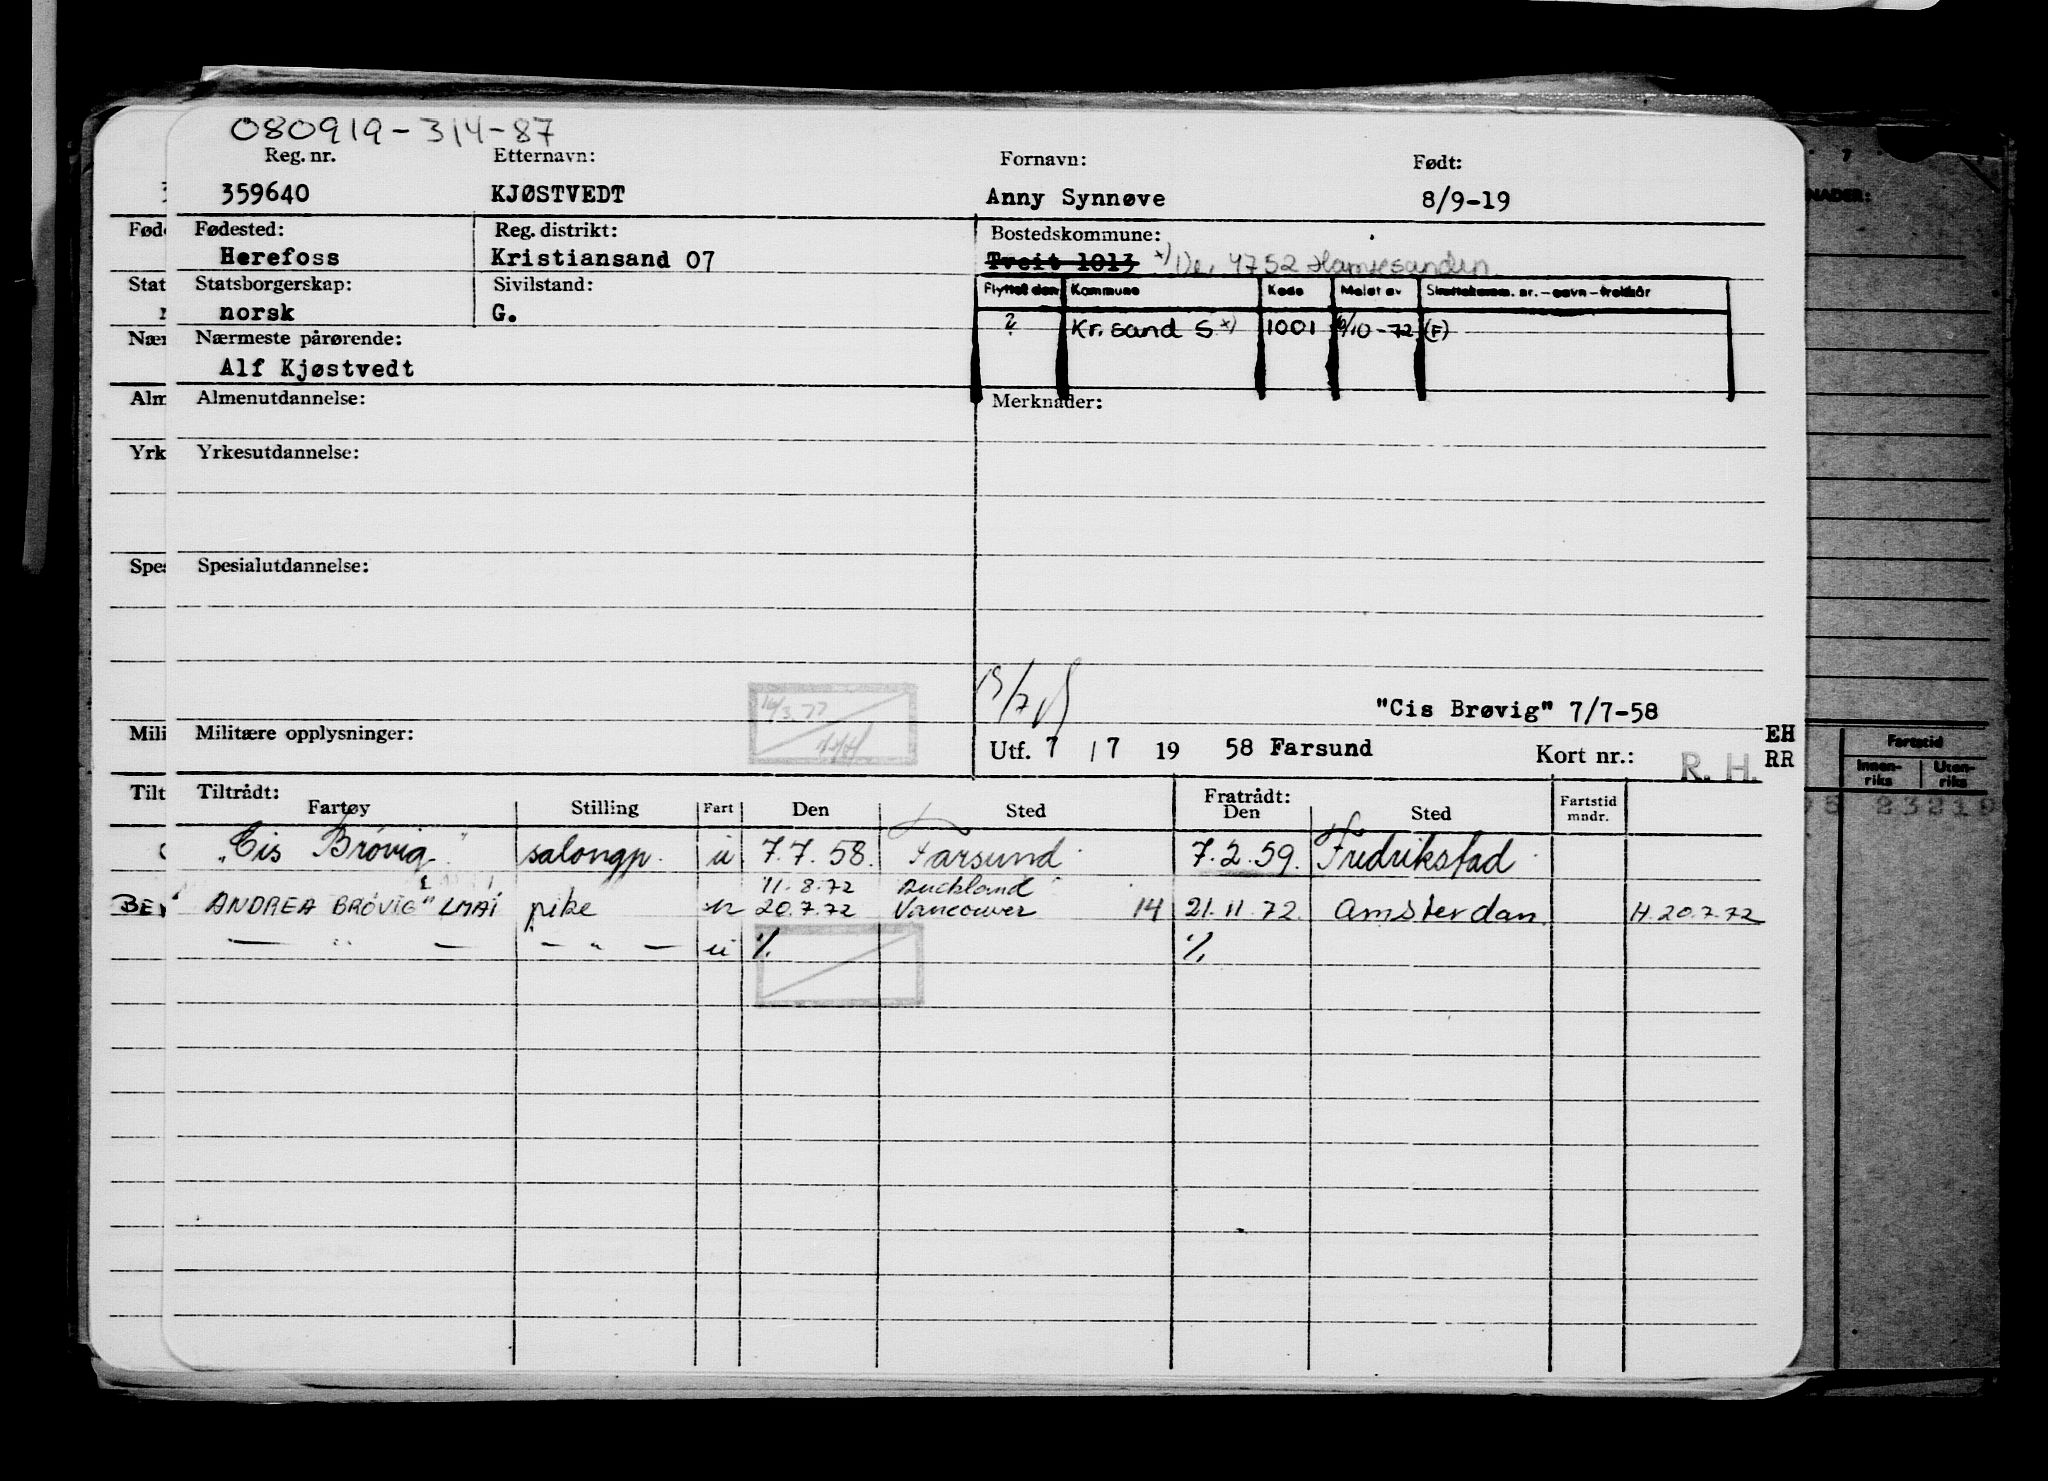 080919-314-87
Reg. nr. Etternavn: Fornavn: Født:
359640 KJØSTVEDT Anny Synnøve 8/9-19
Fødested: Reg. distrikt: Bostedskommune:
Herefoss Kristiansand 07 Tveit 1013 x) 4752 Hamresanden
Statsborgerskap: Sivilstand: Flyttet den Kommune Kode Meldt av Skattekomm. nr. - navn - trekkår
norsk G. ? Kr. sand S x) 1001 10/10-72 (F)
Nærmeste pårørende:
Alf Kjøstvedt
Almenutdannelse: Merknader:
Yrkesutdannelse:
Spesialutdannelse:
"Cis Brøvig" 7/7-58
Militære opplysninger: Utf. 7 / 7 19 58 Farsund Kort nr.: R. H. EH
RR
Tiltrådt: Fratrådt:
Fartøy Stilling Fart Den Sted Den Sted Fartstid mndr.
"Cis Brøvig" salongp. u 7.7.58. Farsund 7.2.59. Fredrikstad
11.8.72 Auckland
ANDREA BRØVIG" LMAI pike u 20.7.72 Vancouver 14 21.11.72. Amsterdam H.20.7.72
— " — — " — u %. %.
Fød
Stat
Nær
Alm
Yrk
Spes
Mili
Tilt
BE
NADER:
Fartstid
Innen-
riks
Uten-
riks